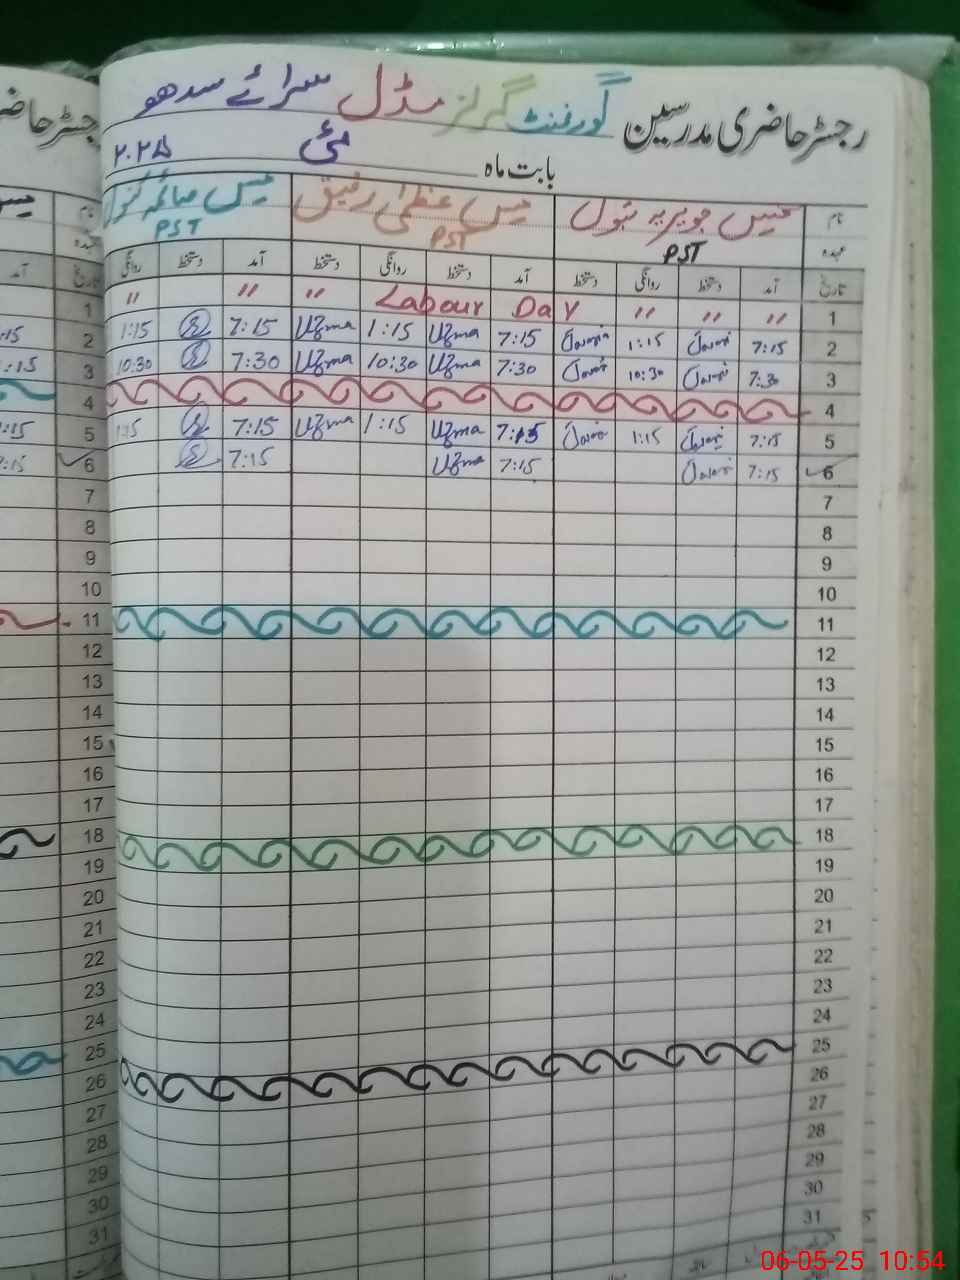 رجسٹر حاضری مدرسین گورنمنٹ گرلز مڈل سرائے سدھو
بابت ماہ مئی ۲۰۲۵
نام مس جویریہ بتول مس عظمیٰ رفیق مس صائمہ کنول
عہدہ PST PST PST
تاریخ آمد دستخط روانگی دستخط آمد دستخط روانگی دستخط آمد دستخط روانگی
1 〃 〃 〃 Labour Day 〃 〃 〃
2 7:15 1:15 7:15 Uzma 1:15 Uzma 7:15 1:15
3 7:30 10:30 7:30 Uzma 10:30 Uzma 7:30 10:30
4
5 7:15 1:15 7:15 Uzma 1:15 Uzma 7:15 1:15
6 7:15 7:15 Uzma 7:15
7
8
9
10
11
12
13
14
15
16
17
18
19
20
21
22
23
24
25
26
27
28
29
30
31
06-05-25 10:54